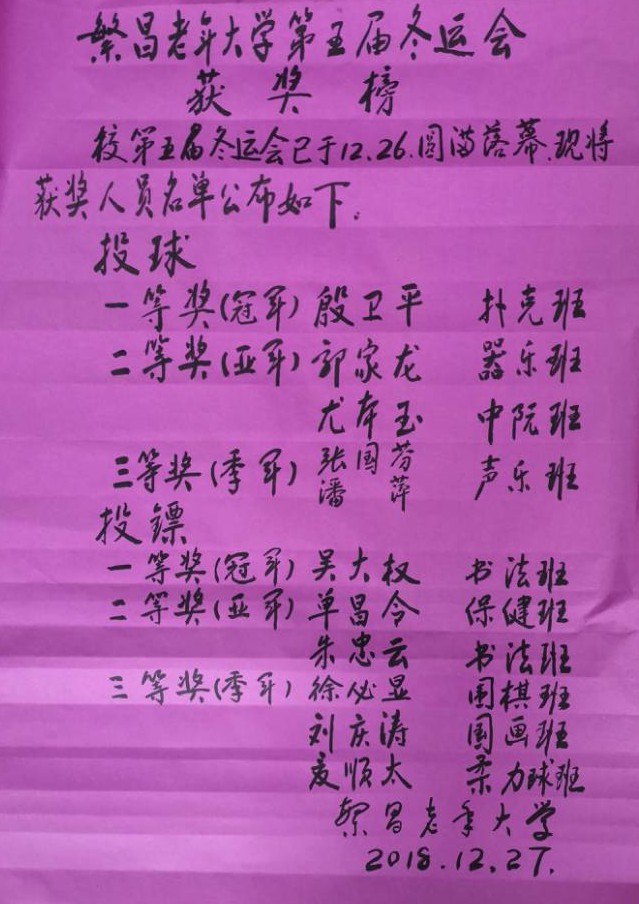 繁昌老年大学第五届冬运会
获奖榜
校第五届冬运会已于12.26.圆满落幕.现将
获奖人员名单公布如下:
投球
一等奖(冠军) 殷卫平 扑克班
二等奖(亚军) 郭家龙 器乐班
尤本玉 中阮班
三等奖(季军) 张国芬 声乐班
潘萍
投镖
一等奖(冠军) 吴大权 书法班
二等奖(亚军) 单昌令 保健班
朱忠云 书法班
三等奖(季军) 徐必显 围棋班
刘庆涛 国画班
顺太 柔力球班
繁昌老年大学
2018.12.27.